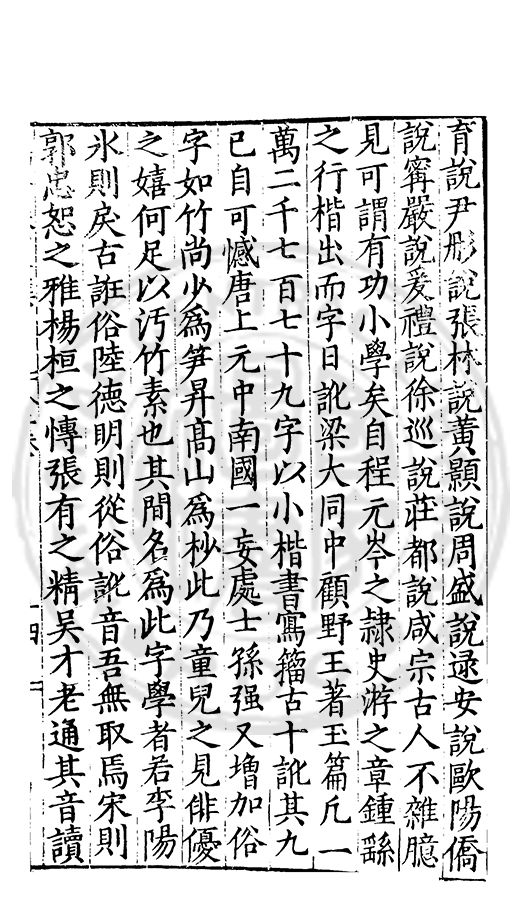 育說尹彤說張林說黃顥說周盛說逯安說歐陽僑
說寗嚴說爰禮說徐巡說莊都說咸宗古人不雜臆
見可謂有功小學矣自程元岑之隷史游之章鍾繇
之行楷出而字日訛梁大同中顧野王著玉篇凡一
萬二千七百七十九字以小楷書寫籀古十訛其九
已自可憾唐上元中南國一妄處士孫强又增加俗
字如竹尚少爲笋昇高山爲杪此乃童兒之見俳優
之嬉何足以汚竹素也其間名爲此字學者若李陽
氷則戾古誑俗陸德明則從俗訛音吾無取焉宋則
郭忠恕之雅楊桓之慱張有之精吳才老通其音讀